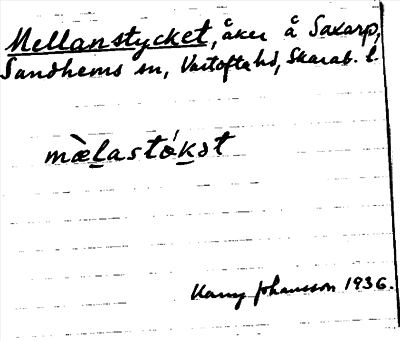 Mellanstycket, åker å Saxarp,
Sandhems sn, Vartofta hd, Skarab. l.
mæ̀lastǿkət
Harry Johansson 1936.